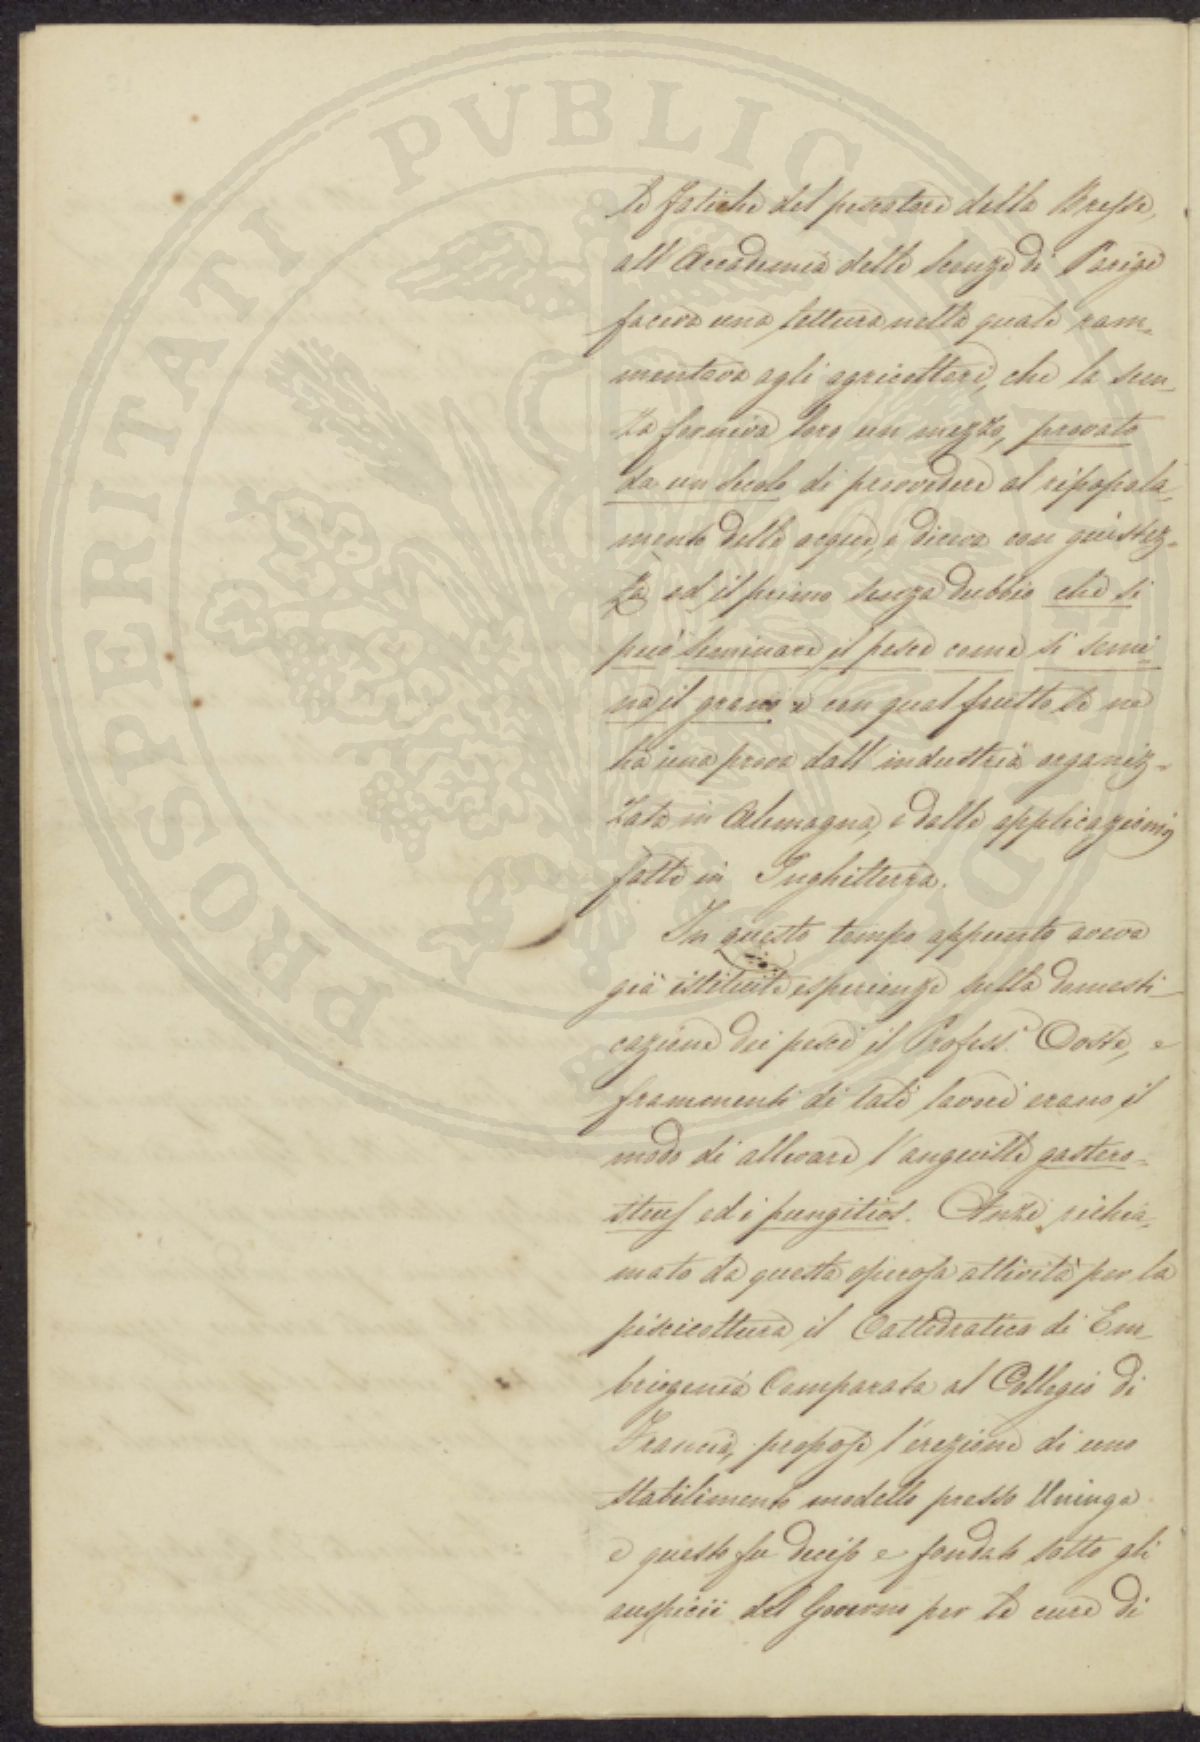 PROSPERITATI PVBLICAE
le fatiche del pescatore della Bresse,
all'Accademia delle Scienze di Parigi
faceva una lettura nella quale ram-
mentava agli agricoltori, che la scien-
za forniva loro un mezzo, provato
da un secolo di provvedere al ripopola-
mento delle acque, e diceva con giustez-
za ed il primo senza dubbio che si
può seminare il pesce come si semi-
na il grano e con qual frutto se ne
ha una prova dall'industria organiz-
zata in Alemagna, e dalle applicazioni
fatte in Inghilterra.
In questo tempo appunto aveva
già istituite esperienze sulla domesti-
cazione dei pesci il Profess. Coste, e
frammenti di tali lavori erano il
modo di allevare l'anguille gastero-
steus ed i pungitios. Anzi richia-
mato da questa operosa attività per la
piscicoltura il Cattedratico di Em-
briogenia Comparata al Collegio di
Francia, propose l'erezione di uno
stabilimento modello presso Uninga
e questo fu deciso e fondato sotto gli
auspicii del Governo per le cure di